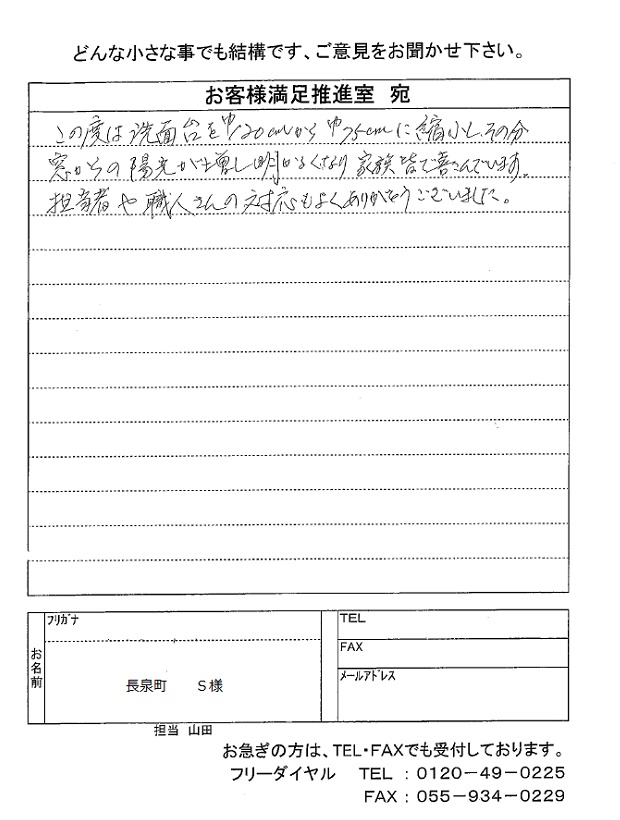 どんな小さな事でも結構です、ご意見をお聞かせ下さい。
お客様満足推進室 宛
この度は洗面台を巾120cmから巾75cmに縮小し、その分
窓からの陽光が増し明かるくなり家族皆で喜んでいます。
担当者や職人さんの対応もよくありがとうございました。
フリガナ
お名前
長泉町 S様
TEL
FAX
メールアドレス
担当 山田
お急ぎの方は、TEL・FAXでも受付しております。
フリーダイヤル TEL：0120－49－0225
FAX：055－934－0229